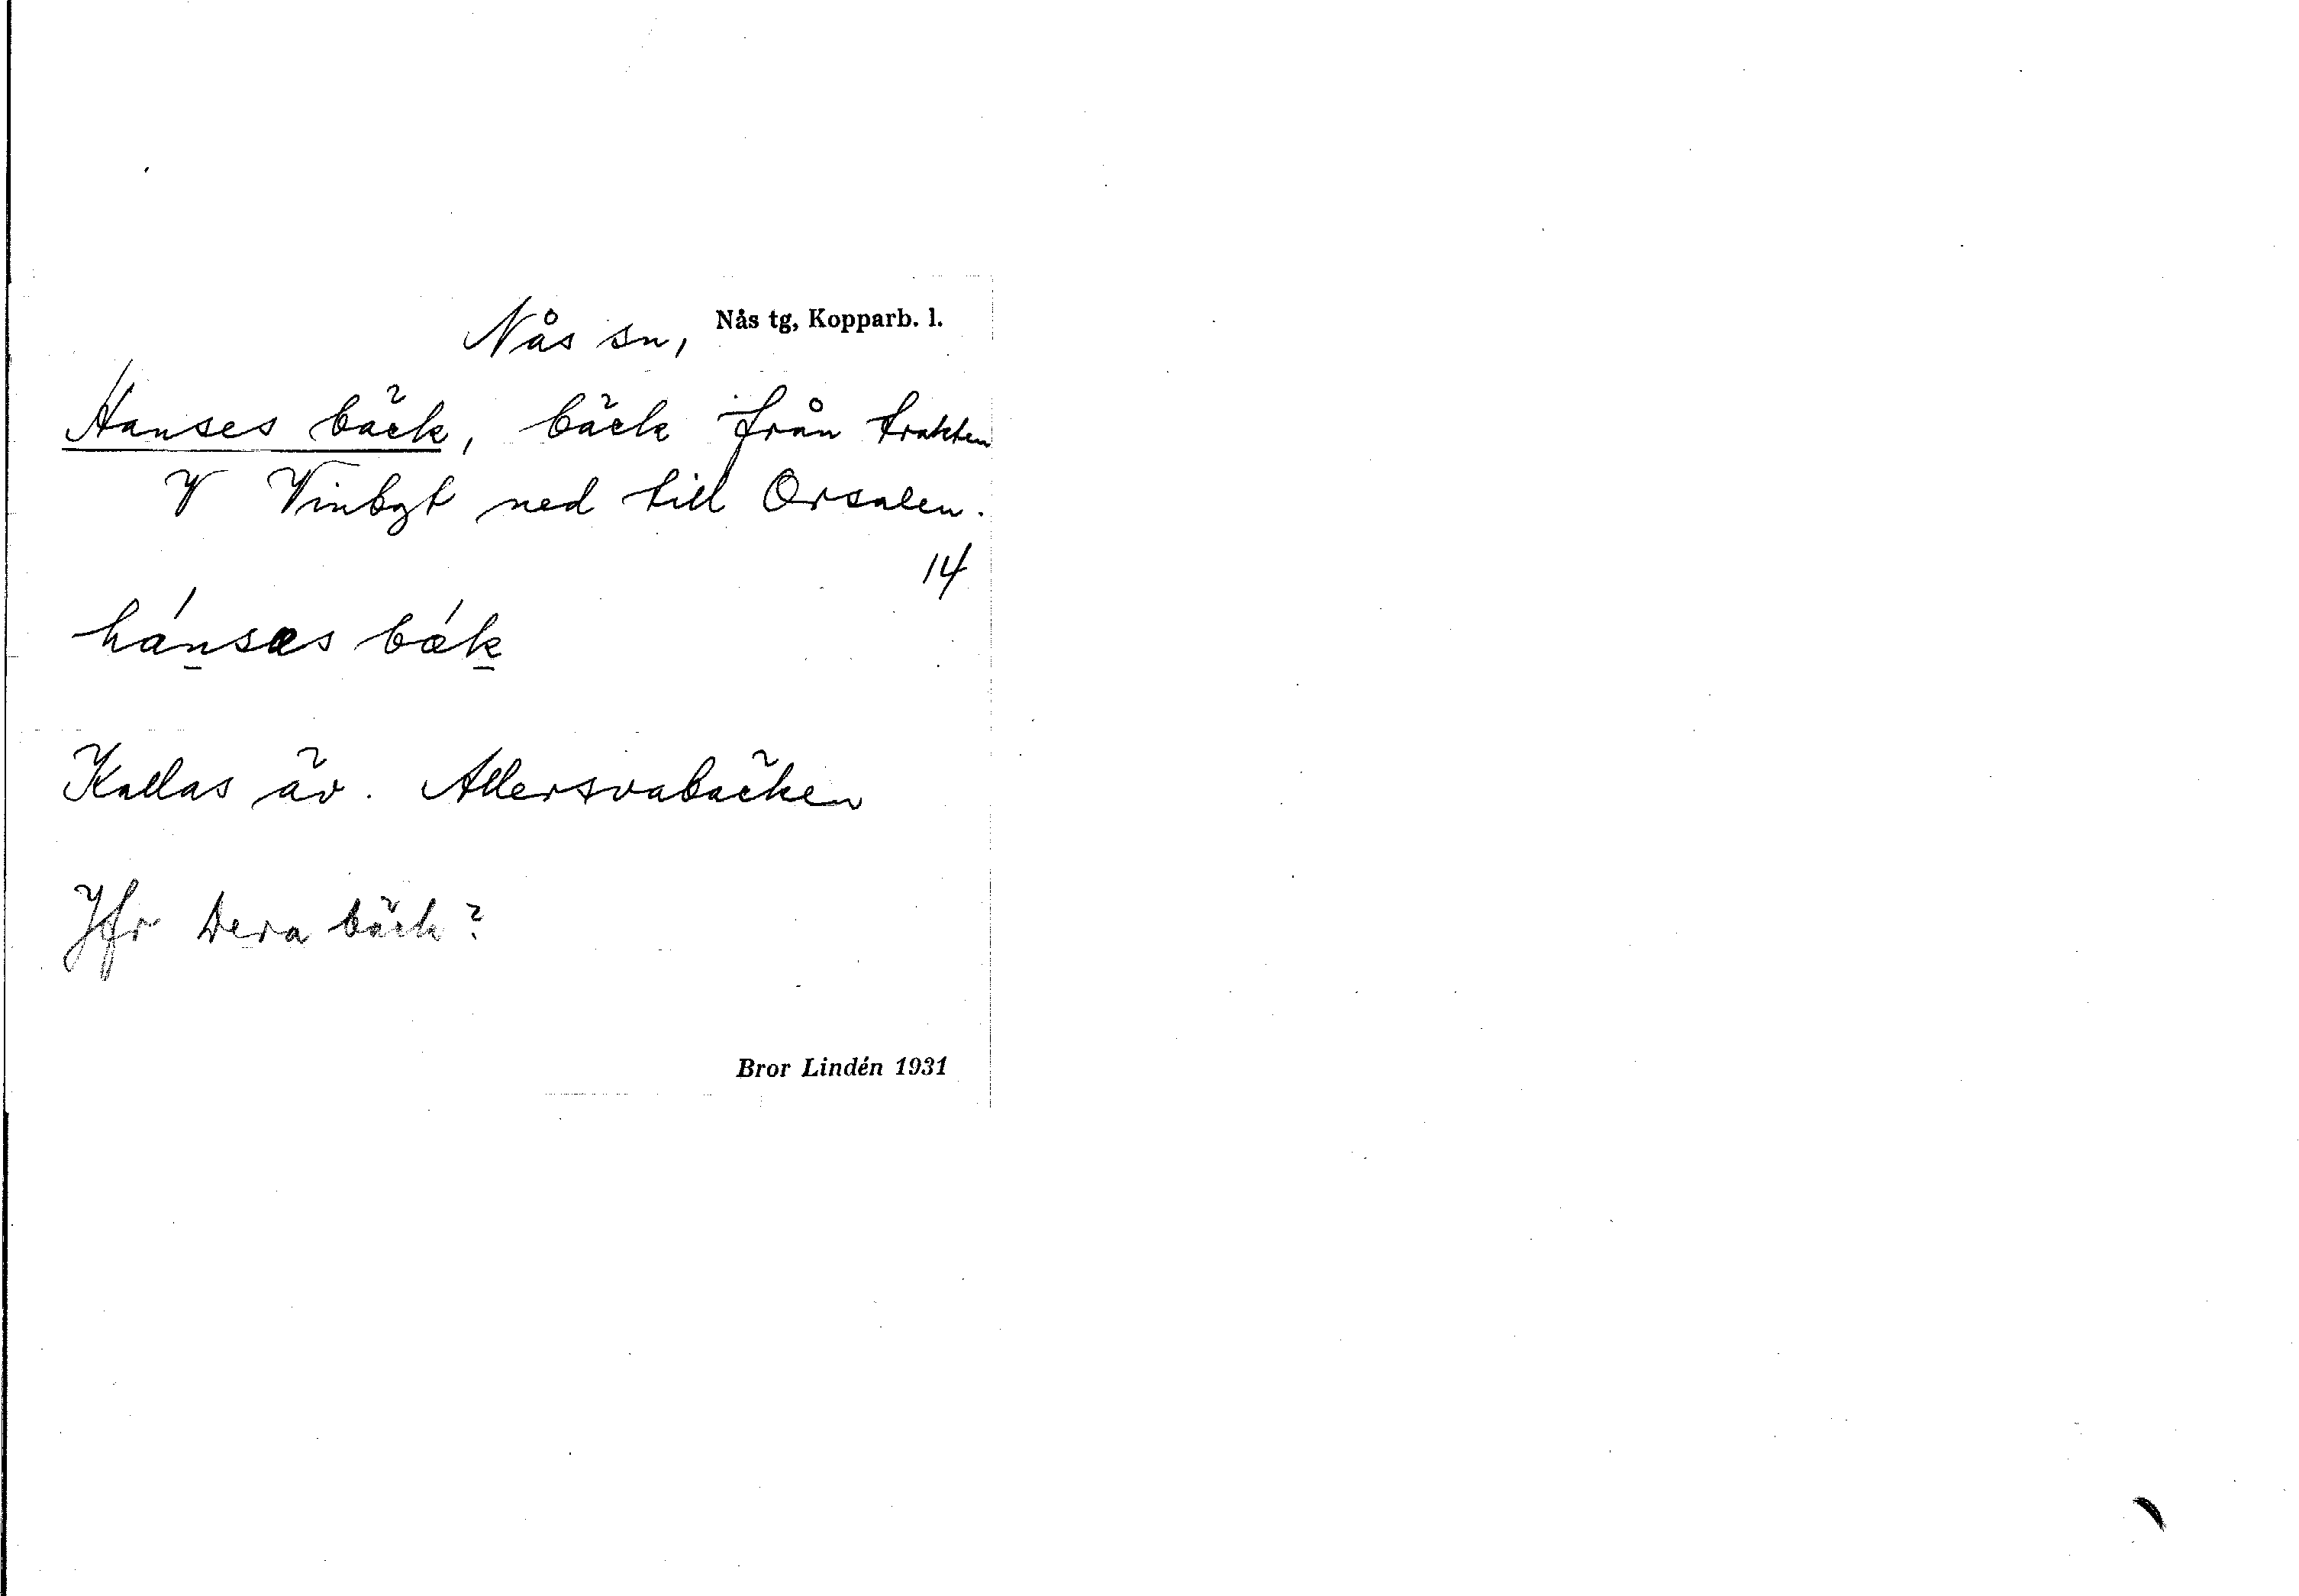 Nås sn, Nås tg, Kopparb. l.
Hanses bäck, bäck från trakten
V Vinbyt ned till Orsalen.
14
hánsæs bǽk
Kallas äv. Allersvabäcken
Jfr Dera bäck?
Bror Lindén 1931